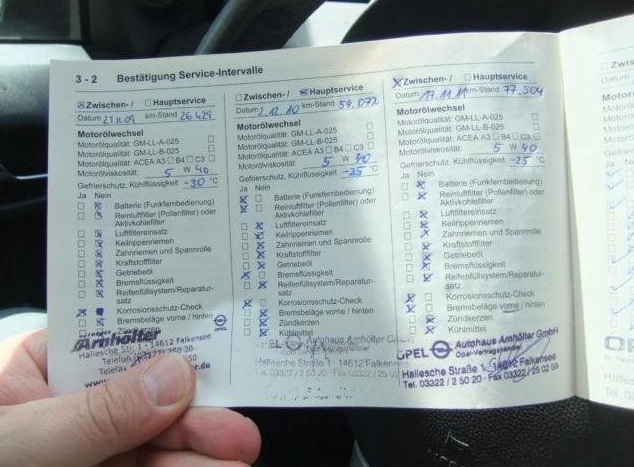 3 - 2 Bestätigung Service-Intervalle
Zwischen- / Hauptservice
Datum 27.11.09 km-Stand 26 429
Motorölwechsel
Motorölqualität: GM-LL-A-025
Motorölqualität: GM-LL-B-025
Motorölqualität: ACEA A3 B4 C3
Motorölviskosität: 5 W 40
Gefrierschutz, Kühlflüssigkeit -30 °C
Ja Nein
Batterie (Funkfernbedienung)
Reinluftfilter (Pollenfilter) oder
Aktivkohlefilter
Luftfiltereinsatz
Keilrippenriemen
Zahnriemen und Spannrolle
Kraftstofffilter
Getriebeöl
Bremsflüssigkeit
Reifenfüllsystem/Reparatur-
satz
Korrosionsschutz-Check
Bremsbeläge vorne / hinten
Zündkerzen
Arnhölter
OPEL
Hallesche Str. 1 · 14612 Falkensee
Telefon
Telefax
www.
Zwischen- / Hauptservice
Datum 2.12.10 km-Stand 54.072
Motorölwechsel
Motorölqualität: GM-LL-A-025
Motorölqualität: GM-LL-B-025
Motorölqualität: ACEA A3 B4 C3
Motorölviskosität: 5 W 40
Gefrierschutz, Kühlflüssigkeit -25 °C
Ja Nein
Batterie (Funkfernbedienung)
Reinluftfilter (Pollenfilter) oder
Aktivkohlefilter
Luftfiltereinsatz
Keilrippenriemen
Zahnriemen und Spannrolle
Kraftstofffilter
Getriebeöl
Bremsflüssigkeit
Reifenfüllsystem/Reparatur-
satz
Korrosionsschutz-Check
Bremsbeläge vorne / hinten
Zündkerzen
Kühlmittel
Autohaus Arnhölter GmbH
Hallesche Straße 1 14612 Falkensee
Zwischen- / Hauptservice
Datum 17.11.11 km-Stand 77 504
Motorölwechsel
Motorölqualität: GM-LL-A-025
Motorölqualität: GM-LL-B-025
Motorölqualität: ACEA A3 B4 C3
Motorölviskosität: 5 W 40
Gefrierschutz, Kühlflüssigkeit -25 °C
Ja Nein
Batterie (Funkfernbedienung)
Reinluftfilter (Pollenfilter) oder
Aktivkohlefilter
Luftfiltereinsatz
Keilrippenriemen
Zahnriemen und Spannrolle
Kraftstofffilter
Getriebeöl
Bremsflüssigkeit
Reifenfüllsystem/Reparatur-
satz
Korrosionsschutz-Check
Bremsbeläge vorne / hinten
Zündkerzen
Kühlmittel
OPEL Autohaus Arnhölter GmbH
Opel-Vertragshändler
Hallesche Straße 1, 14612 Falkensee
Tel. 03322 / 2 50 20 · Fax 03322 / 25 02 50